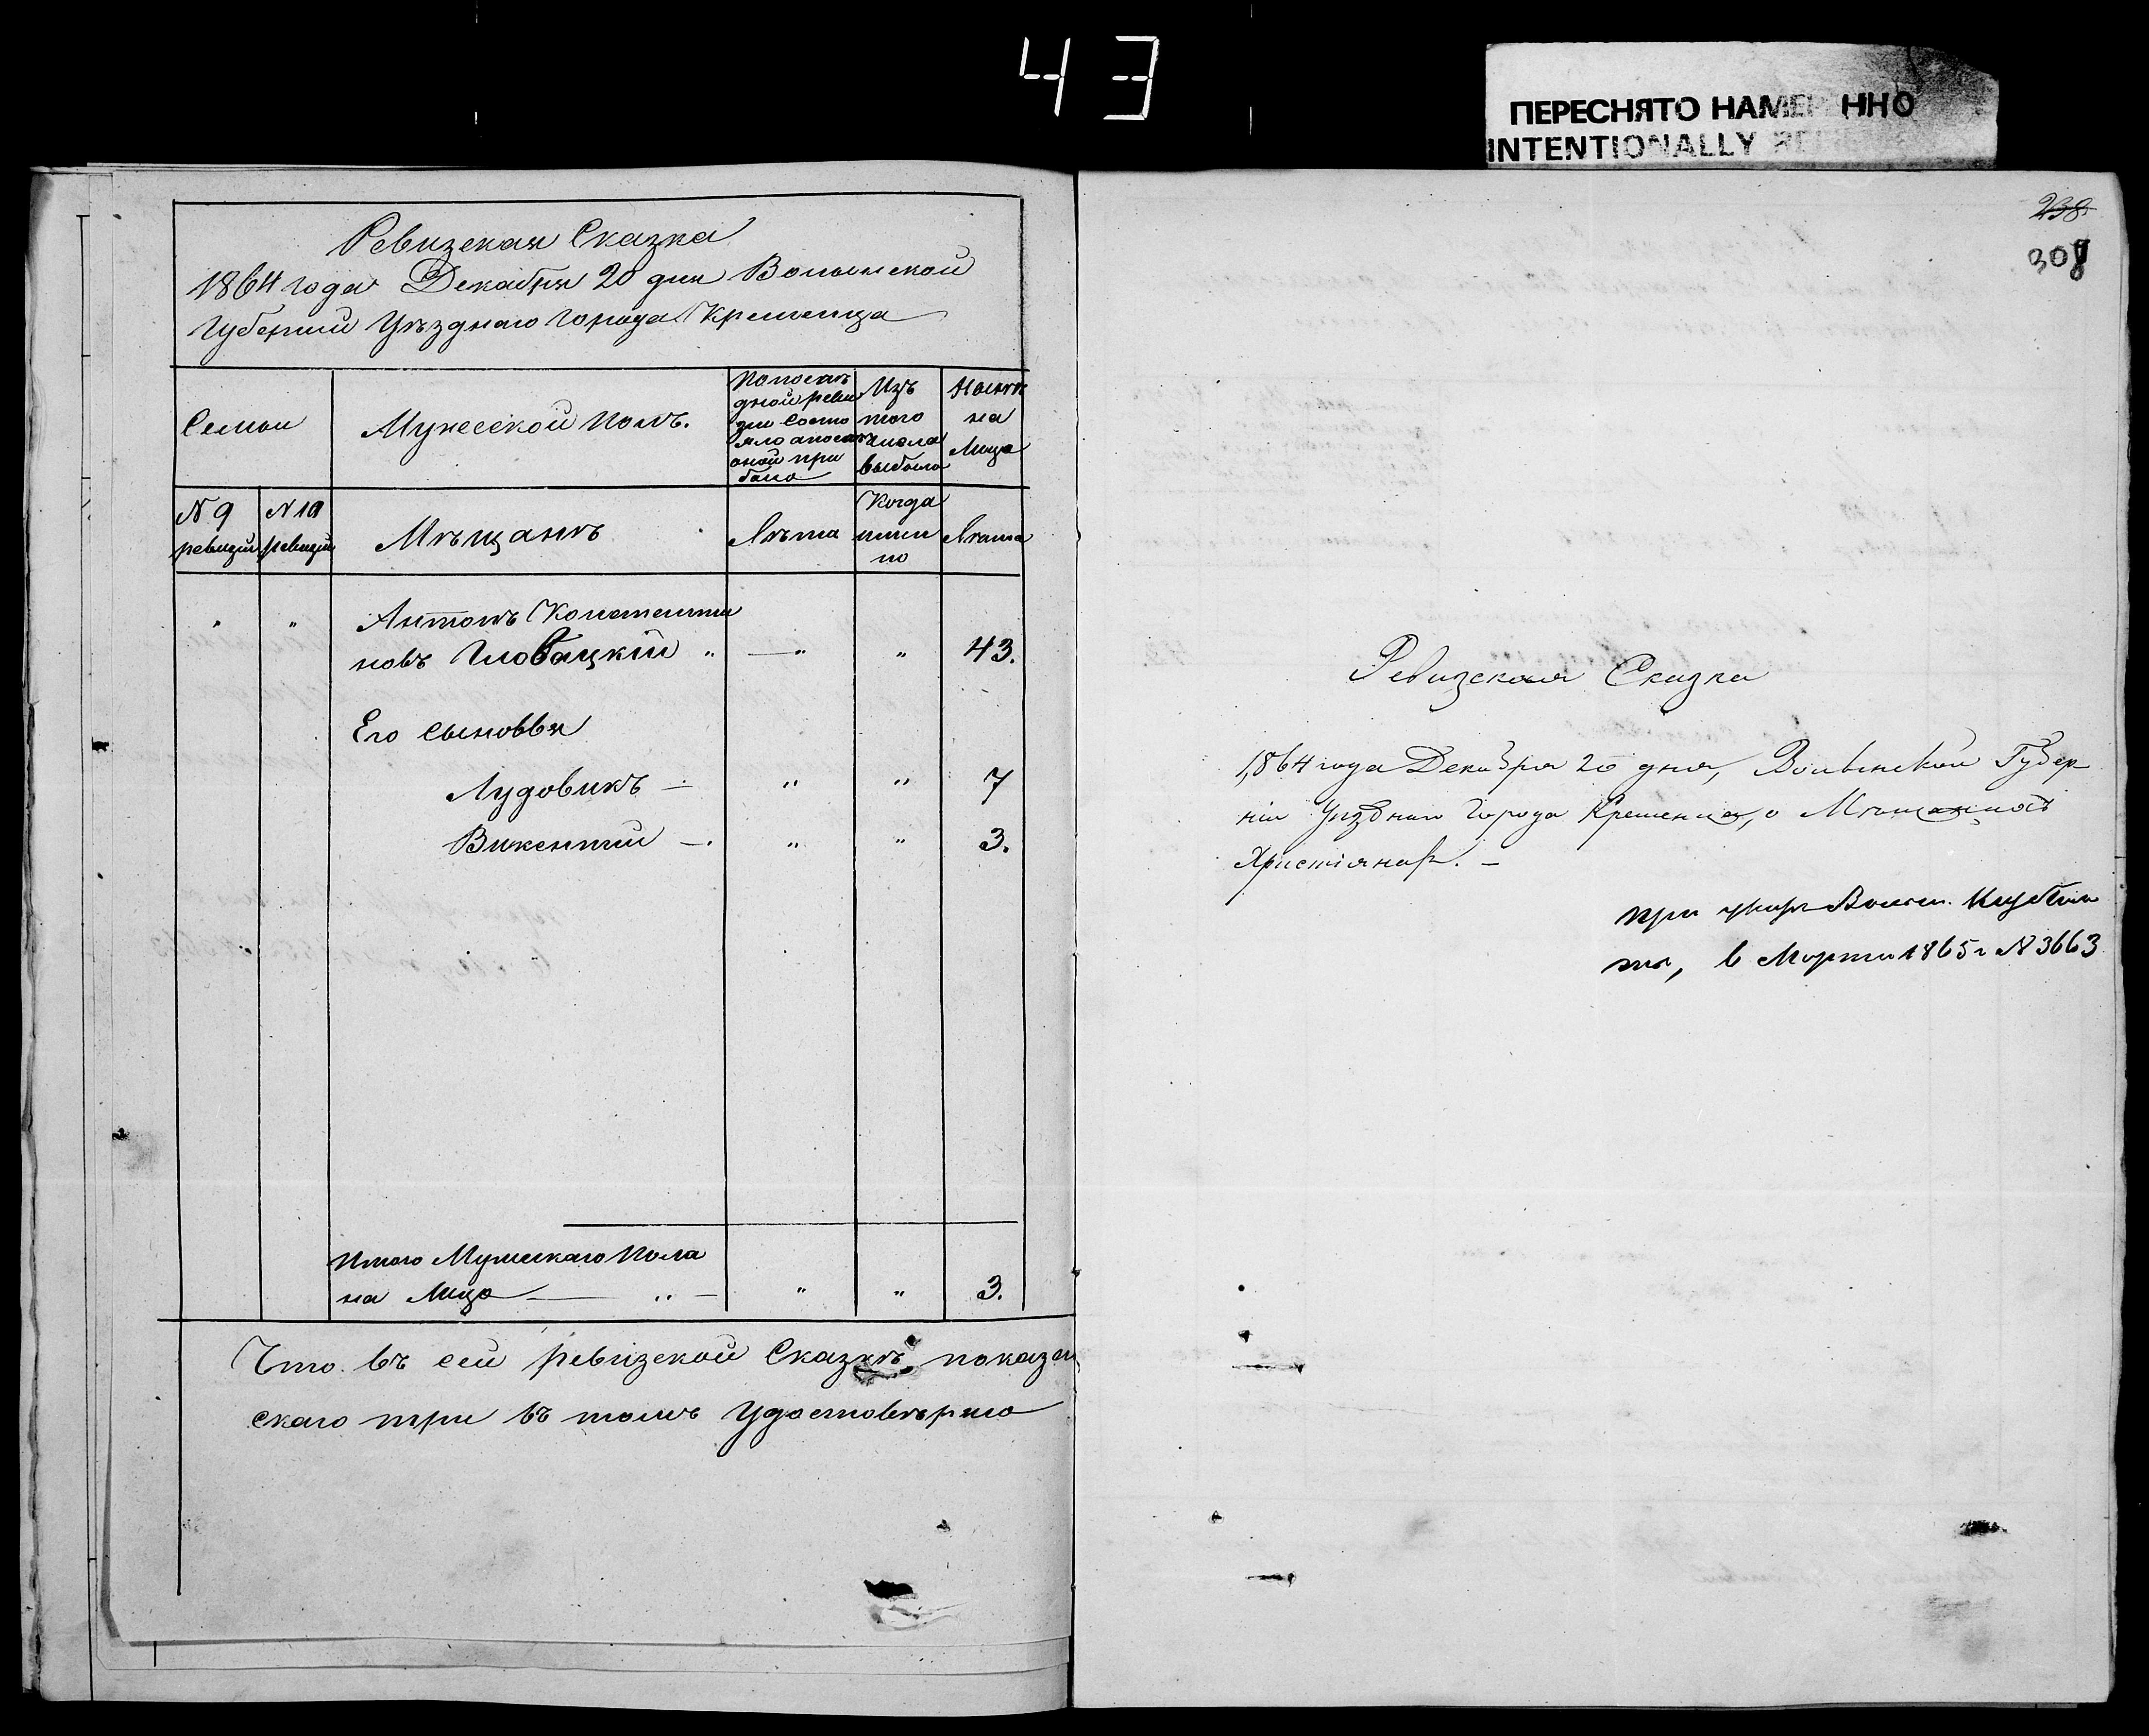 43
ПЕРЕСНЯТО НАМЕР ННО
INTENTIONALLY
Ревизская Сказка
1864 года Декабря 20 дня Волынской
Губернии Уѣзднаго Города Кременца
Семьи
Мужеской Полъ.
По послѣ
дней реви
зіи состо
яло а послѣ
оной при
было
Изъ
того
числа
выбыло
Нынѣ
на
Лицо
№ 9
ревизіи
№ 10
ревизіи
Мѣщанъ
Лѣта
Когда
имен
но
Лѣта
" " Антонъ Константи
новъ Гловацкій " — " " 43.
Его сыновья
Лудовикъ — " " 7
Викентий — . " " 3.
Итого Мужескаго Пола
на Лицо — " — " " 3.
Что въ сей ревизской Сказкѣ показан
скаго три въ томъ удостовѣряю
238
308
Ревизская Сказка
1864 года Декабря 20 дня, Волынской Губер
ніи Уѣзднаго Города Кременца, о Мѣщанахъ
Христіянахъ. —
при
в Марта 1865 г № 3663